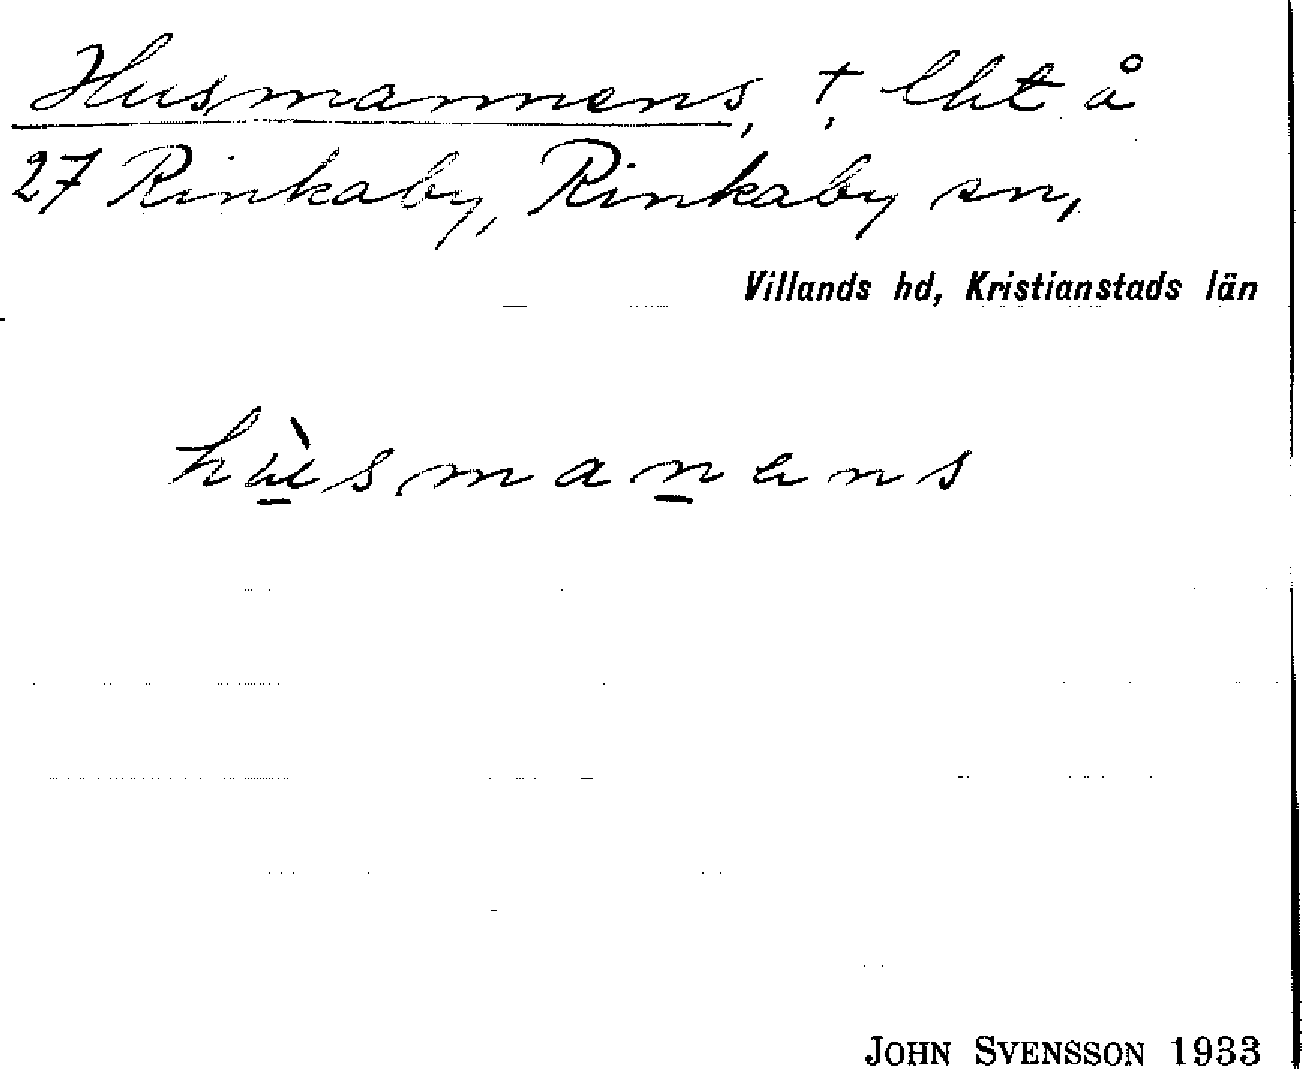 Husmannens, †. lht å
27 Rinkaby, Rinkaby sn,
Villands hd, Kristianstads län
hù̱smaṉens
JOHN SVENSSON 1933